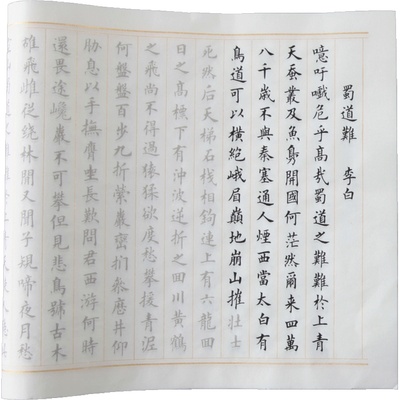 蜀道難 李白
噫吁嚱危乎高哉蜀道之難難於上青
天蚕叢及魚鳧開國何茫然爾来四萬
八千歲不與秦塞通人煙西當太白有
鳥道可以橫絕峨眉巔地崩山摧壮士
死然后天梯石栈相鈎連上有六龍回
日之高標下有沖波逆折之回川黄鶴
之飛尚不得過猿猱欲度愁攀援青泥
何盤盤百步九折縈巖巒捫參歷井仰
脅息以手撫膺坐長歎問君西游何時
還畏途巉巖不可攀但見悲鳥號古木
雄飛雌從繞林間又聞子規啼夜月愁